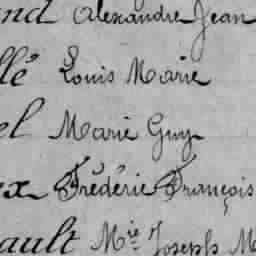 nd Alexandre Jean
llé Louis Marie
el Marie Guy
ex Frédéric François
ault Mie Joseph M